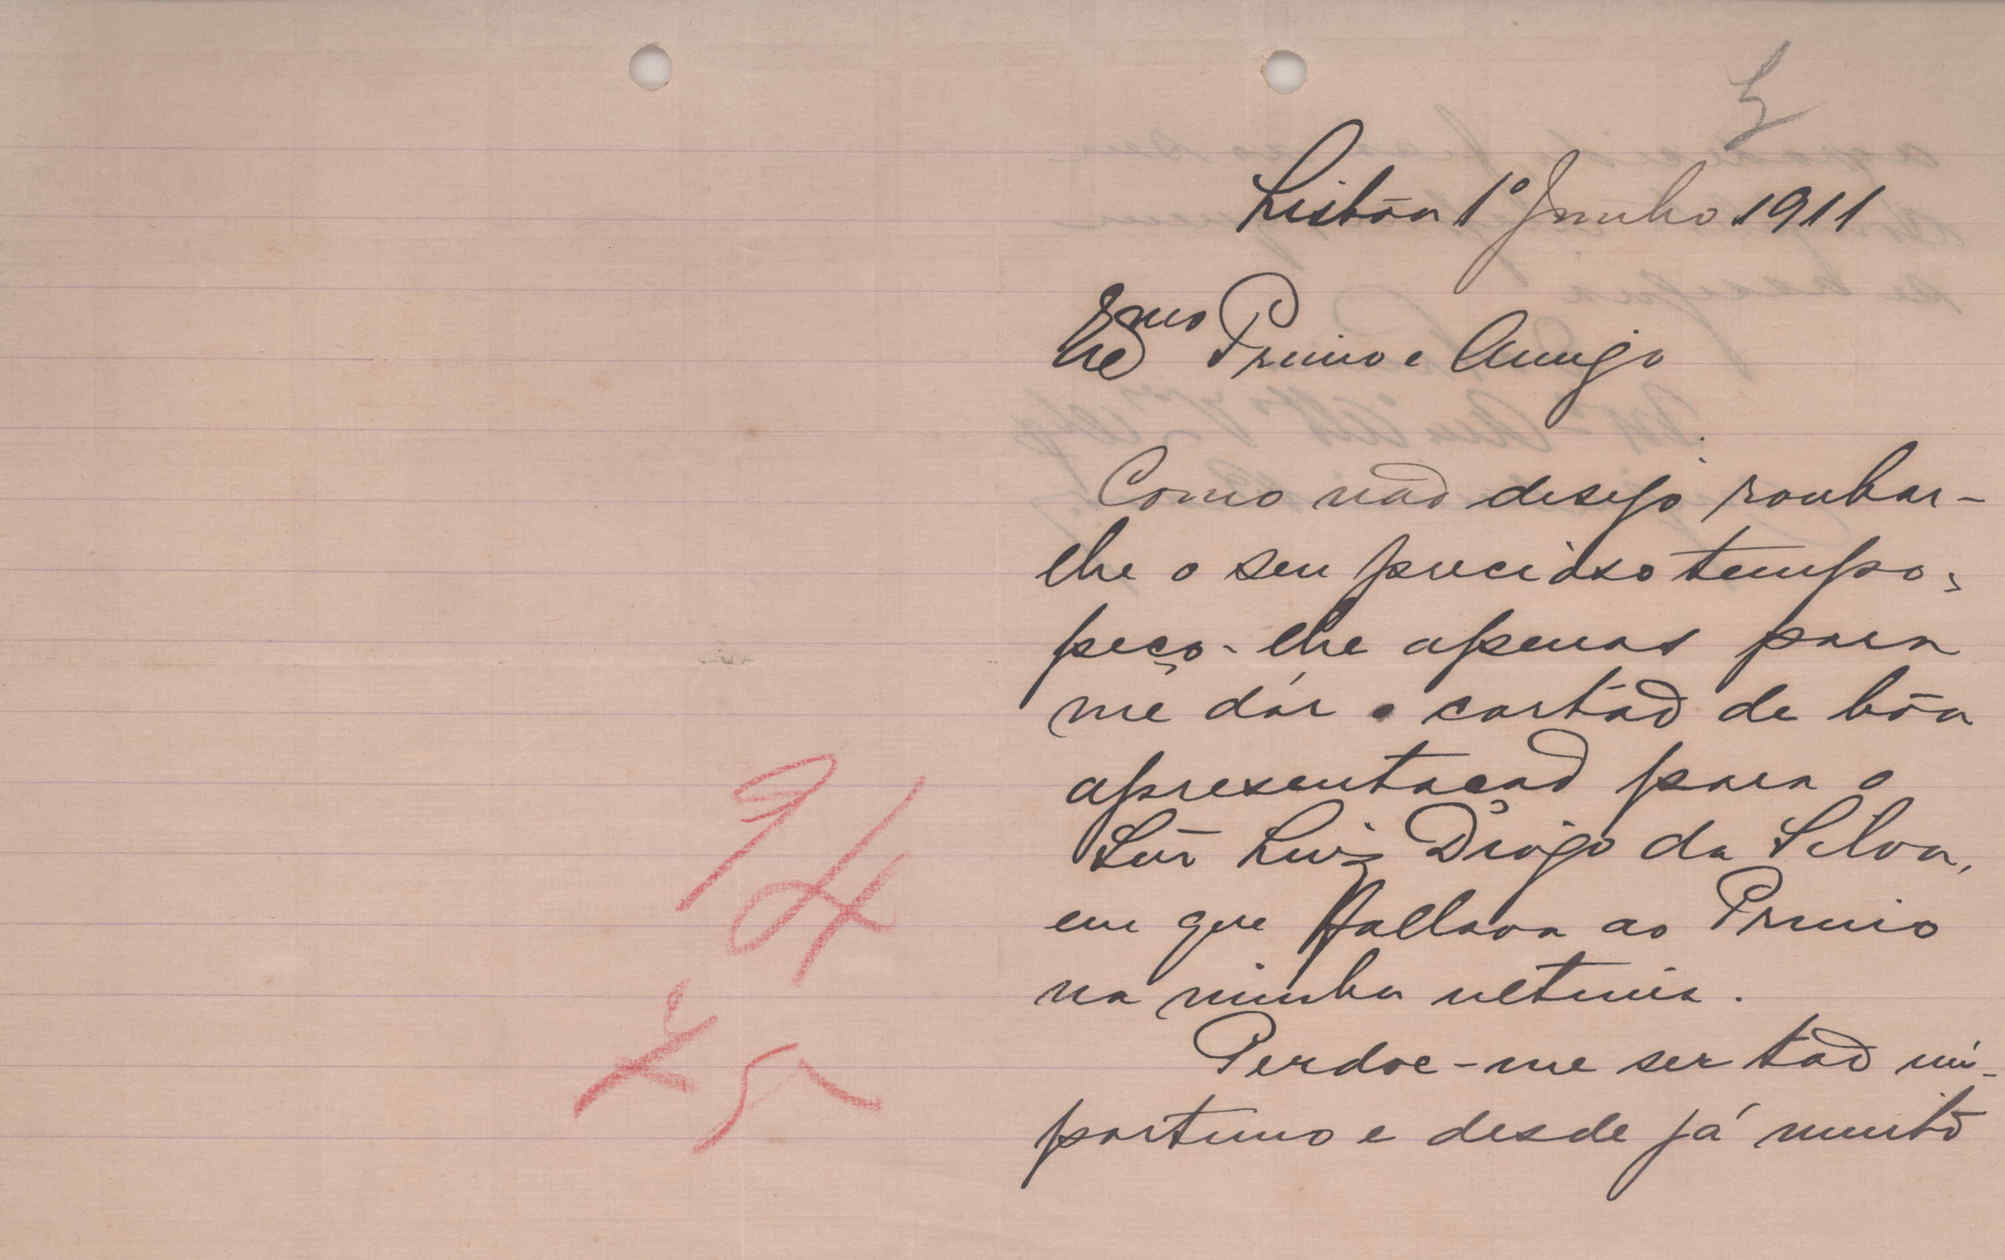 Lisbôa 1º Junho 1911
Exmo Primo e Amigo
Como não desejo roubar-
lhe o seu precioso tempo,
peço-lhe apenas para
me dár o cartão de bôa
apresentacão para o
Snr Luiz Diogo da Silva,
em que fallava ao Primo
na minha ultima.
Perdoe-me ser tão im-
portuno e desde já muito
94